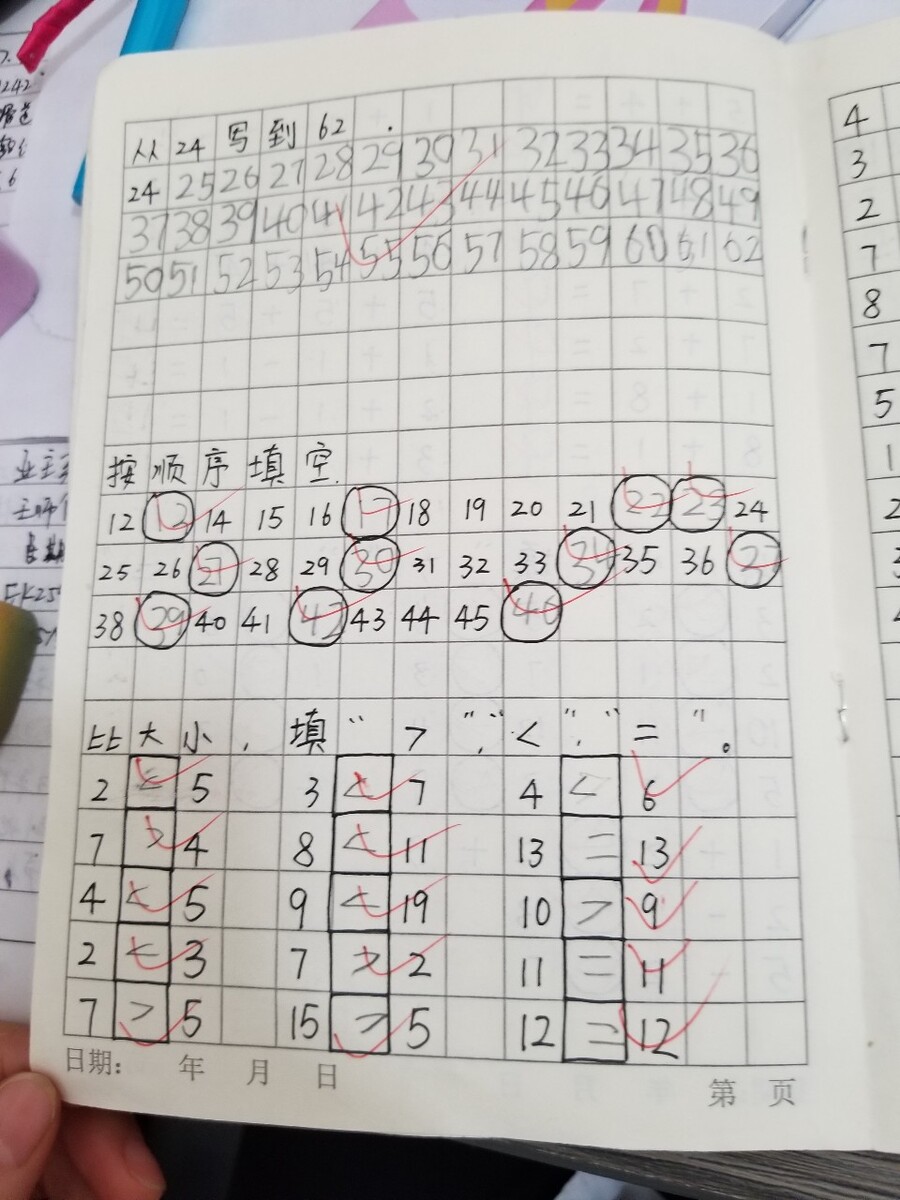 从24写到62.
24 25 26 27 28 29 30 31 32 33 34 35 36
37 38 39 40 41 42 43 44 45 46 47 48 49
50 51 52 53 54 55 56 57 58 59 60 61 62
按顺序填空.
12 13 14 15 16 17 18 19 20 21 22 23 24
25 26 27 28 29 30 31 32 33 34 35 36 37
38 39 40 41 42 43 44 45 46
比大小,填“>”,“<”,“=”。
2 < 5 3 < 7 4 < 6
7 > 4 8 < 11 13 = 13
4 < 5 9 < 19 10 > 9
2 < 3 7 > 2 11 = 11
7 > 5 15 > 5 12 = 12
日期: 年 月 日 第 页
4
3
2
7
8
7
5
1
2